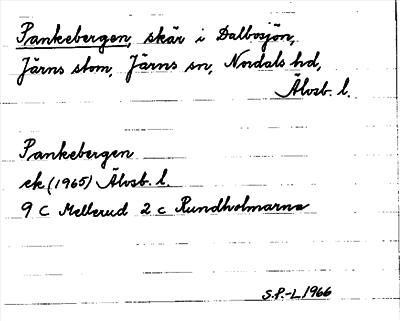 Pankebergen, skär i Dalbosjön,
Järns stom, Järns sn, Nordals hd,
Älvsb. l.
Pankebergen
ek (1965) Älvsb. l.
9 c Mellerud 2 c Rundholmarna
S.P.-L 1966